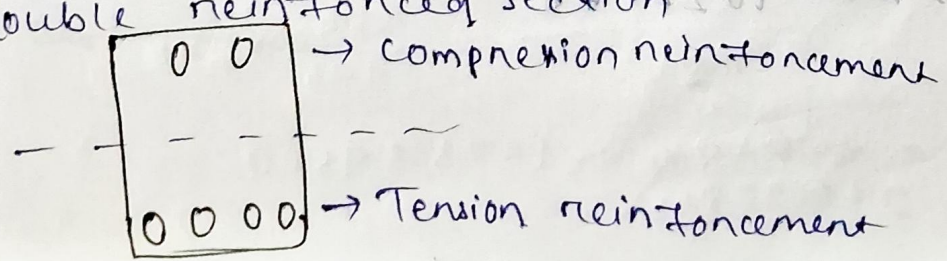 ouble reinforced section
→ compression reinforcement
→ Tension reinforcement